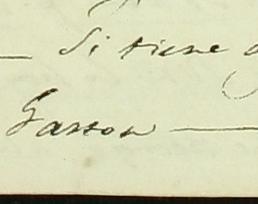 Si tiene
Garzon